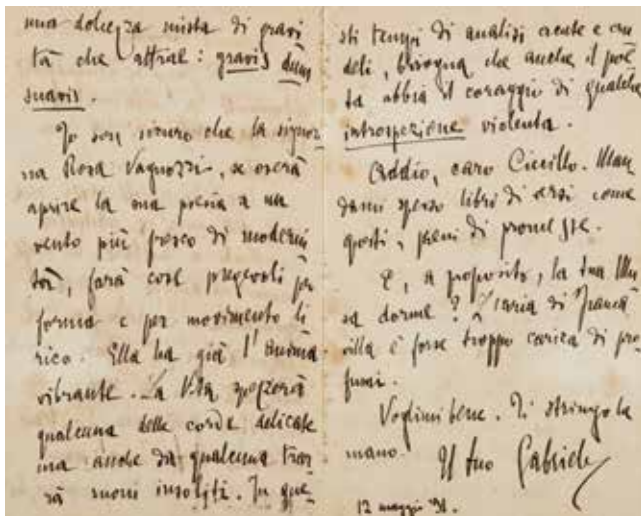 una dolcezza mista di gravi
tà che attrae: gravis dum
suavis.
Io son sicuro che la signori
na Rosa Vagnozzi, se oserà
aprire la sua poesia a un
vento più fresco di moderni
tà, farà cose pregevoli per
forma e per movimento li
rico. Ella ha già l'anima
vibrante. La Vita spezzerà
qualcuna delle corde delicate
ma anche da qualcuna trar
rà suoni insoliti. In que
sti tempi di analisi acute e cru
deli, bisogna che anche il poe
ta abbia il coraggio di qualche
introspezione violenta.
Addio, caro Ciccillo. Man
dami spesso libri di versi come
questi, pieni di promesse.
E, a proposito, la tua Mu
sa dorme? L'aria di Franca
villa è forse troppo carica di pro
fumi.
Voglimi bene. Ti stringo la
mano.
Il tuo Gabriele
12 maggio